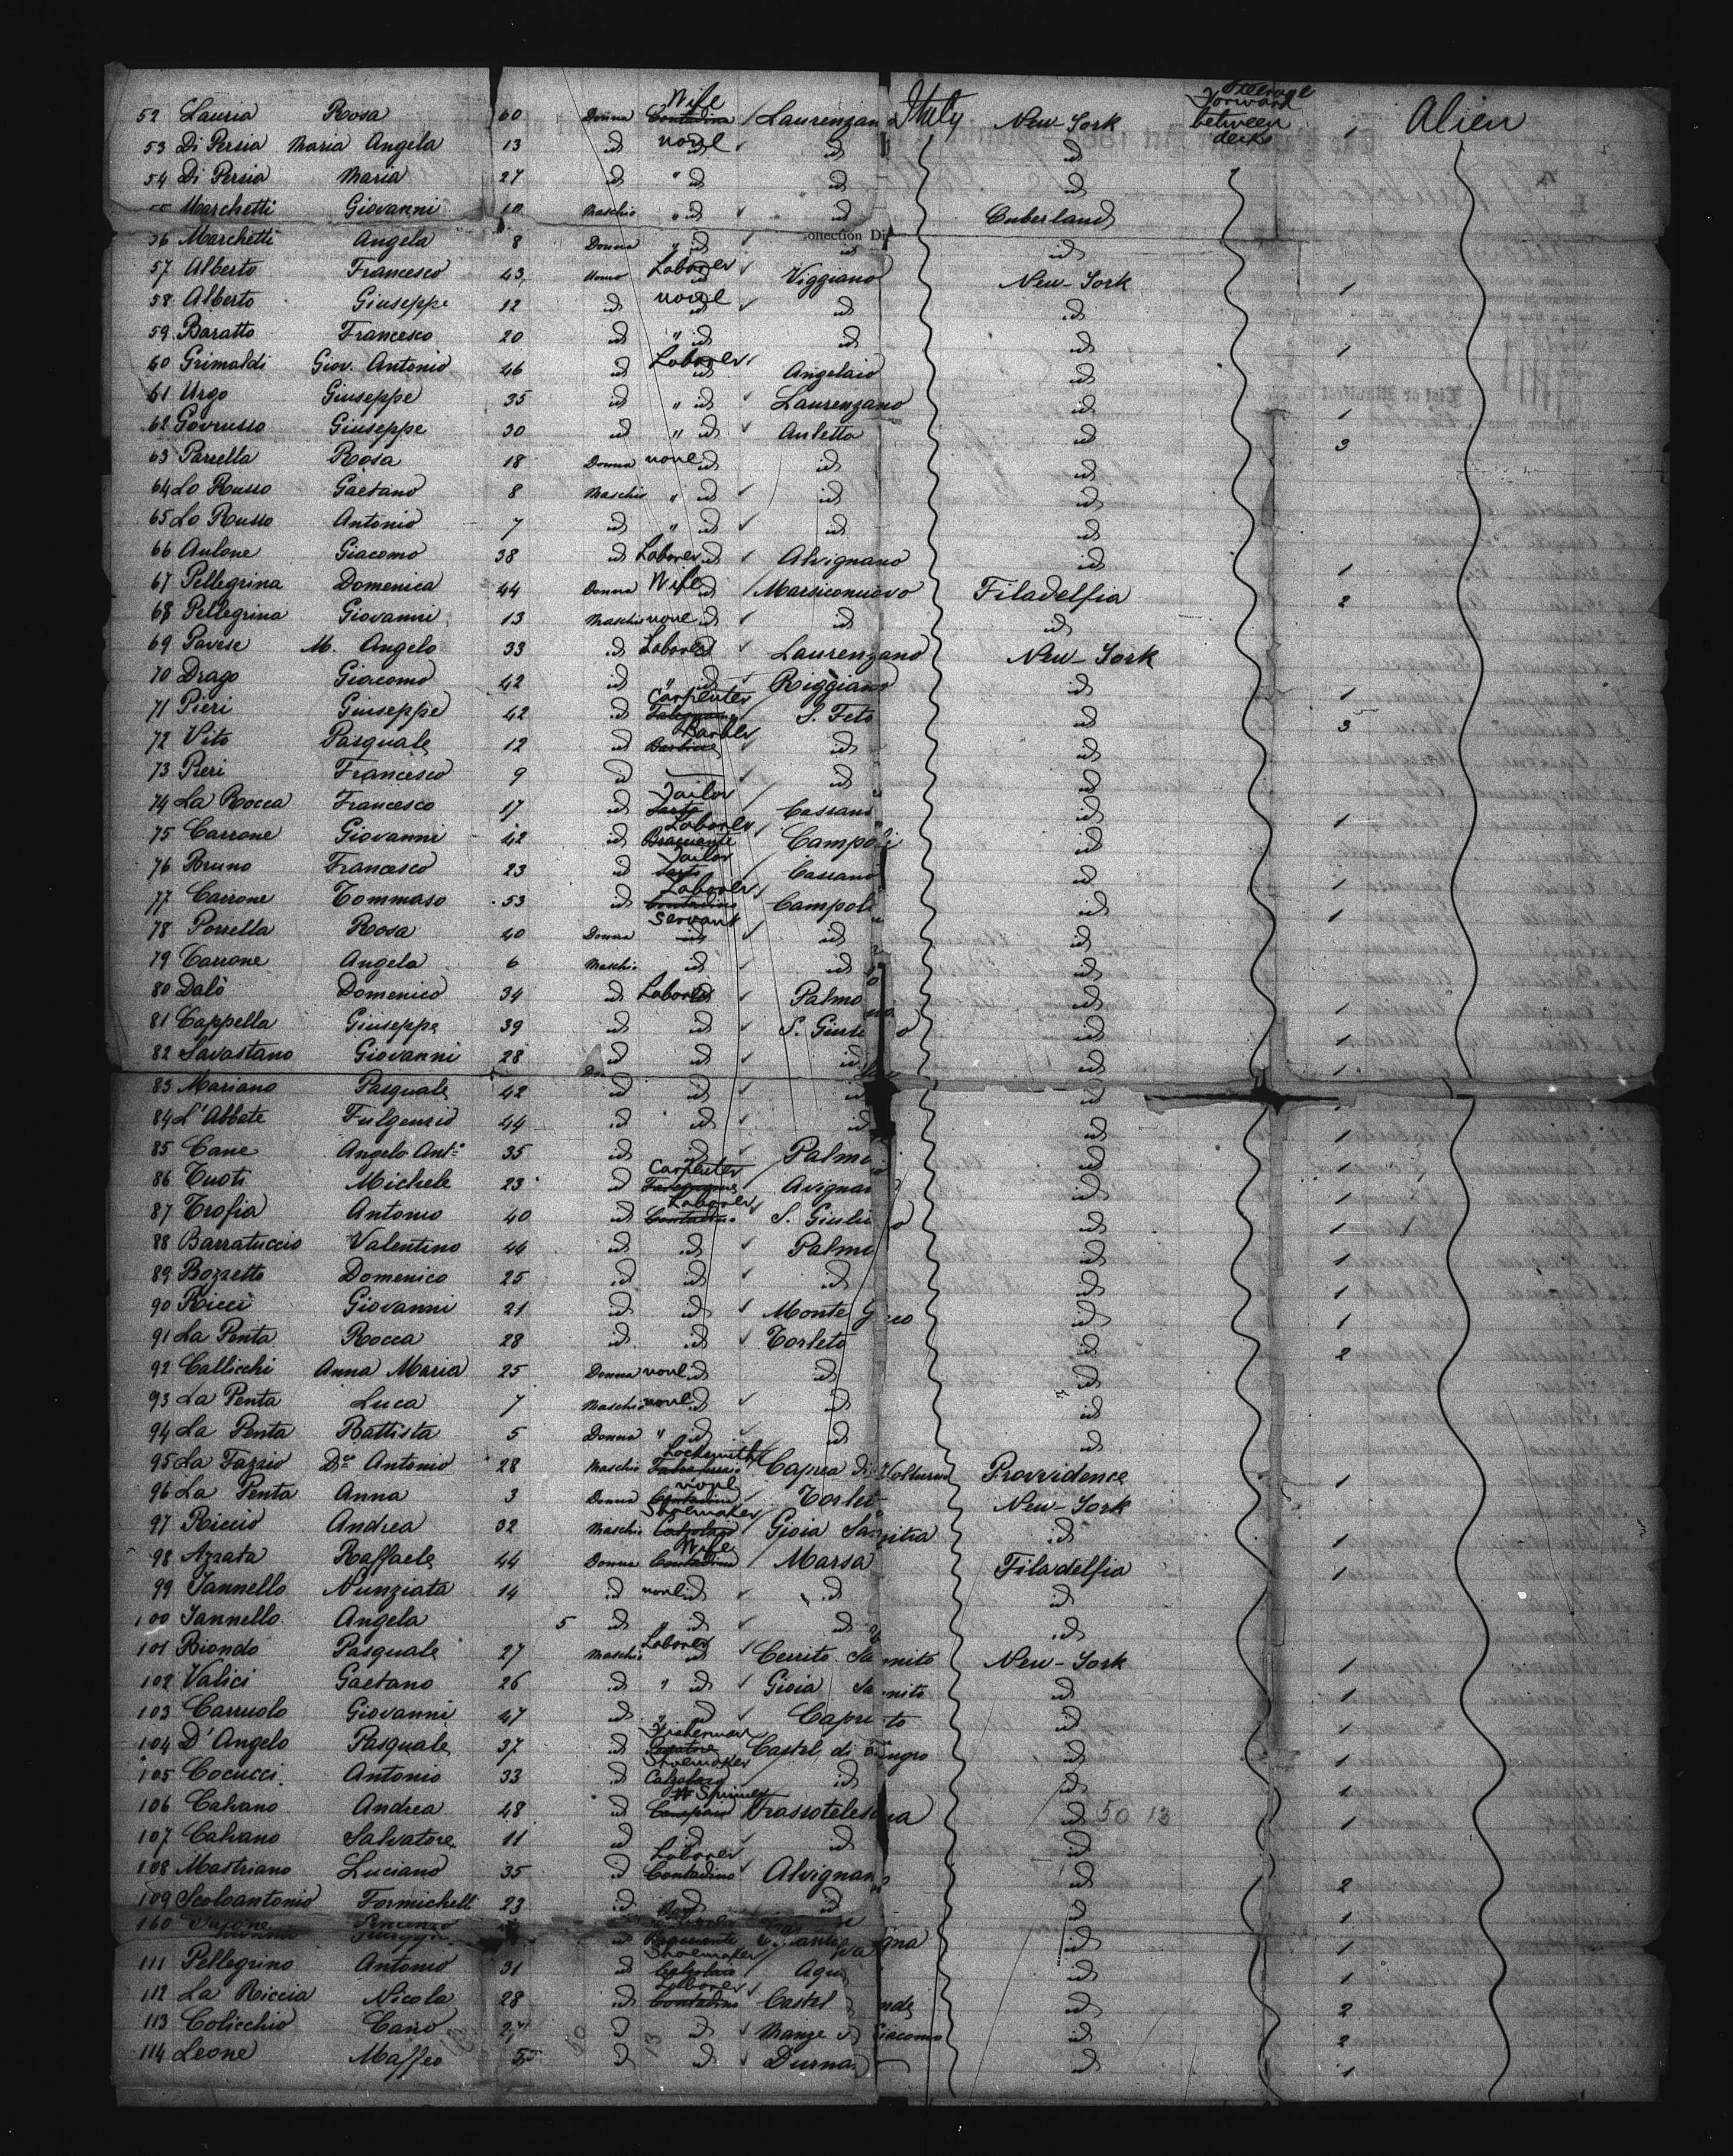 52 Lauria Rosa 60 Donna Contadina Wife / Laurenzan Italy New-York Steerage Forward between decks 1 Alien
53 Di Persia Maria Angela 13 id none ✓ id id
54 Di Persia Maria 27 id " id id id
Marchetti Giovanni 10 Maschio " id ✓ id Cuberland
56 Marchetti Angela 8 Donna " id ✓ id id
onection Di
57 Alberto Francesco 43 Uomo Laborer id ✓ Viggiano New-York 1
58 Alberto Giuseppe 12 id none id ✓ id id
59 Baratto Francesco 20 id " id id id 1
60 Grimaldi Giov. Antonio 46 id Laborer id Angelaio id
61 Urgo Giuseppe 35 id " id ✓ Laurenzano id 1
62 Govrusso Giuseppe 30 id " id ✓ Auletta id 3
63 Parrella Rosa 18 Donna none id id id
64 Lo Russo Gaetano 8 Maschio " id ✓ id id
65 Lo Russo Antonio 7 id " id ✓ id id
66 Aulone Giacomo 38 id Laborer id ✓ Alvignano id 1
67 Pellegrina Domenica 44 Donna Wife id / Marsiconuovo Filadelfia 2
68 Pellegrina Giovanni 13 Maschio none id ✓ id id
69 Pavese M. Angelo 33 id Laborer id ✓ Laurenzano New-York
70 Drago Giacomo 42 id " id ✓ Riggiano id 1
71 Pieri Giuseppe 42 id Falegname Carpenter / S. Feto id 3
72 Vito Pasquale 12 id Barbiere Barber ✓ id id
73 Pieri Francesco 9 id — ✓ id id
74 La Rocca Francesco 17 id Sarto Tailor / Cassano id 1
75 Carrone Giovanni 42 id Bracciante Laborer ✓ Campoli id
76 Bruno Francesco 23 id Sarto Tailor / Cassano id 1
77 Carrone Tommaso 53 id Contadino Laborer / Campoli id 1
78 Porrella Rosa 40 Donna id Servant ✓ id id
79 Carrone Angela 6 Maschio id ✓ id id
80 Dalò Domenico 34 id Laborer id ✓ Palmo id 1
81 Cappella Giuseppe 39 id id ✓ S. Giuli o id 1
82 Savastano Giovanni 28 id id ✓ id id 1
83 Mariano Pasquale 42 id id ✓ id id
84 L'Abbate Fulgenzio 44 id id ✓ id id 1
85 Cane Angelo Ant.o 35 id id / Palmo id 1
86 Tuoti Michele 23 id Falegname Carpenter / Avignan id 1
87 Trofia Antonio 40 id Contadino Laborer ✓ S. Giuli o id 1
88 Barratuccio Valentino 44 id id ✓ Palmo id 1
89 Bozzetto Domenico 25 id id ✓ id id 1
90 Ricci Giovanni 21 id id ✓ Monte G co id 1
91 La Penta Rocca 28 id id ✓ Torleto id 2
92 Callicchi Anna Maria 25 Donna none id id id
93 La Penta Luca 7 Maschio none id ✓ id id
94 La Penta Battista 5 Donna " id ✓ id id
95 La Fazzio D.o Antonio 28 Maschio Locksmith / Caprea Di Volturno Provvidence 1
96 La Penta Anna 3 Donna Contadina none ✓ Torlet New-York
97 Riccio Andrea 32 Maschio Calzolaio Shoemaker / Gioia Sannitia id 1
98 Azzata Raffaele 44 Donna Contadina Wife / Marsa Filadelfia 1
99 Jannello Nunziata 14 id none id ✓ id id
100 Jannello Angela 5 id " id ✓ id id
101 Biondo Pasquale 27 Maschio Laborer id ✓ Cerrito Sannito New-York 1
102 Valici Gaetano 26 id " id ✓ Gioia Sannito id 1
103 Carruolo Giovanni 47 id " id ✓ Capri to id 1
104 D'Angelo Pasquale 37 id Pescatore Fisherman Castel di Sangro id 1
105 Cocucci Antonio 33 id Calzolaio Shoemaker id id 1
106 Calvano Andrea 48 id Canapaio Spinner Frassoteles na id 50 13 1
107 Calvano Salvatore 11 id id ✓ id id
108 Mastriano Luciano 35 id Contadino Laborer ✓ Alvignan id 2
109 Scoloantonio Formichelli 23 id id id id 1
160 id Bracciante id 1
111 Pellegrino Antonio 31 id Calzolaio Shoemaker / Aqu id 1
112 La Riccia Nicola 28 id Contadino Laborer Castel nde id 2
113 Colicchio Cano 27 id id ✓ Manze Giacomo id 2
114 Leone Maffeo id id ✓ Durna id 1